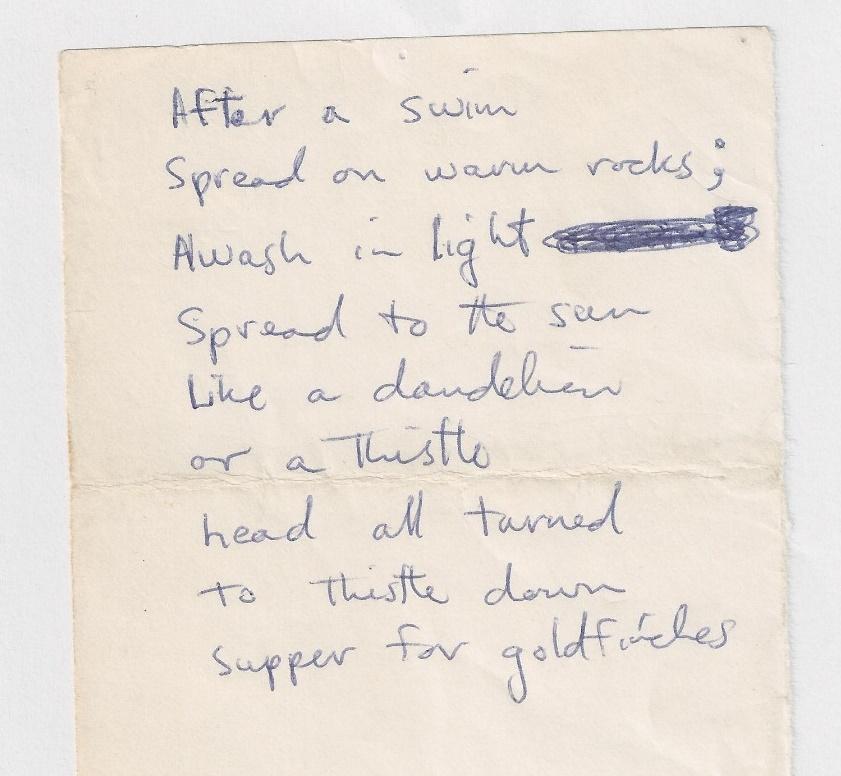 After a swim
Spread on warm rocks;
Awash in light
Spread to the sun
Like a dandelion
or a Thistle
head all turned
to Thistle down
supper for goldfinches